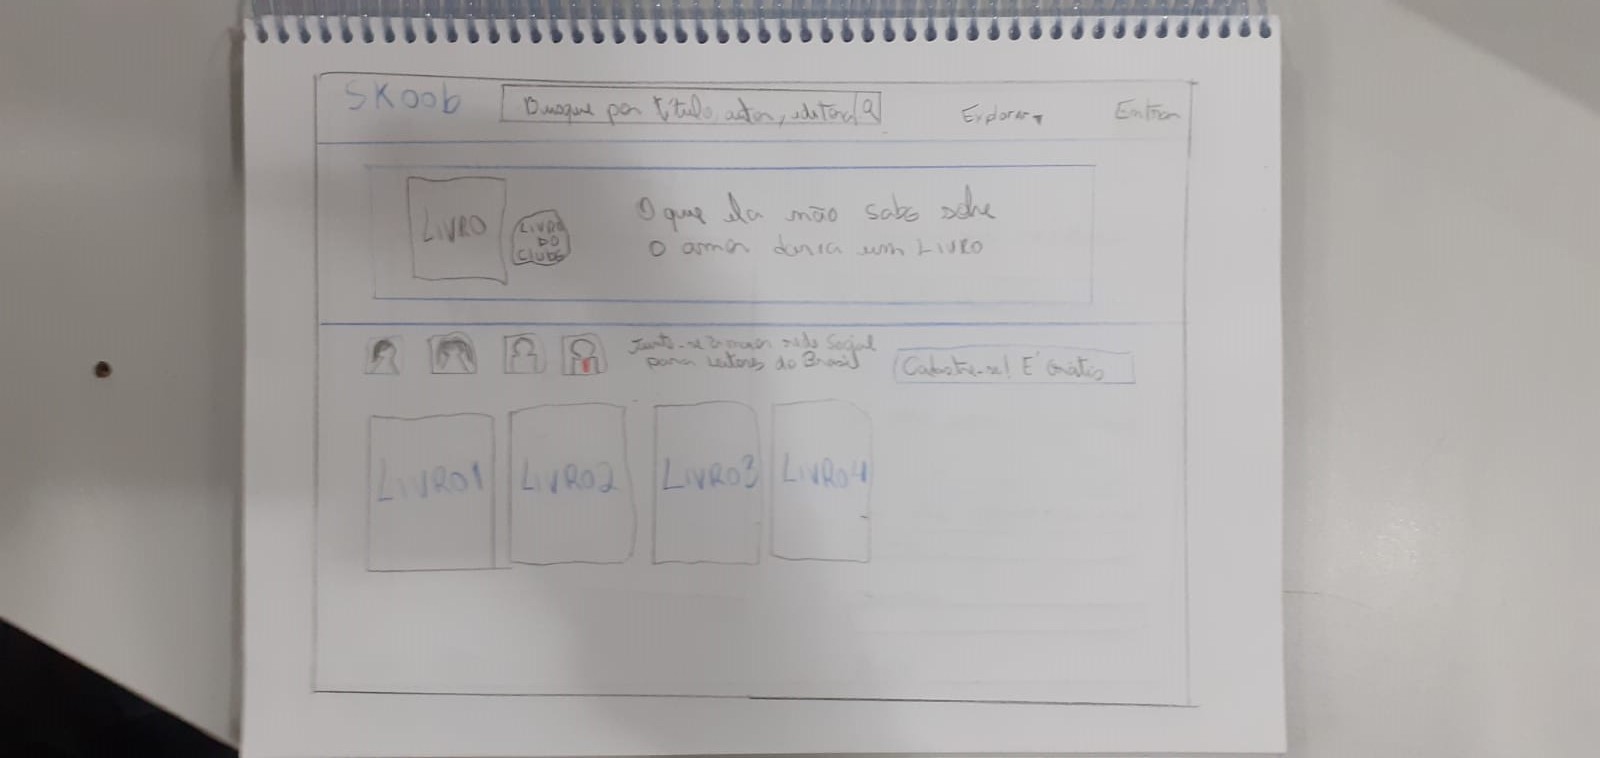 SKoob
Busque por título, autor, editora
Explorar
Entrar
LIVRO
LIVRO
DO
CLUBE
O que ela não sabe sobre
o amor daria um LIVRO
Junte-se à maior rede social
para leitores do Brasil
Cadastre-se! É Grátis
LIVRO1
LIVRO2
LIVRO3
LIVRO4